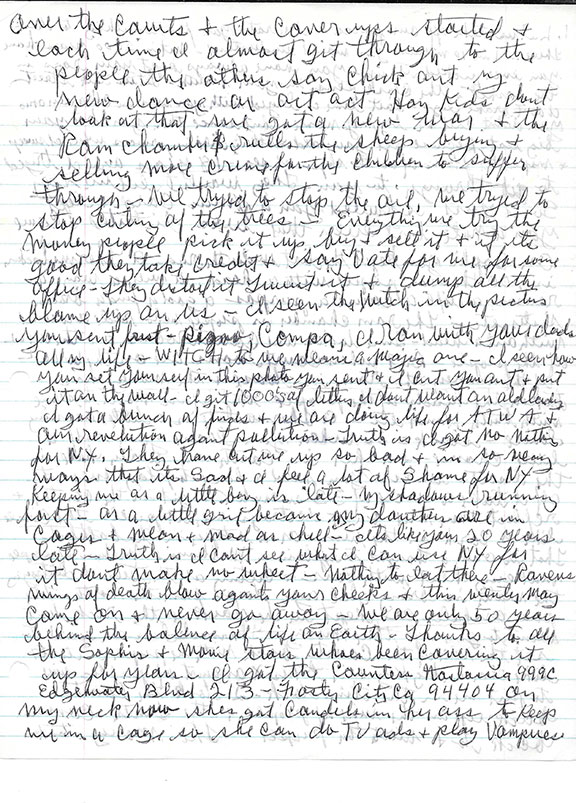 over the Courts & the Coverups started &
each time I almost got through to the
people the others say Chick out my
new dance or art act Hay kids dont
look at that we got a new War & the
Ram Chamber rulls the sheep buying &
selling more crime for the Children to suffer
through – We tryed to stop the oil, we tryed to
stop cuting of the trees – Everything we try the
money people pick it up, buy & sell it & if its
good they take credit & say Vote for me for some
office – They distort it twist it & dump all the
blame up on us – I seen the witch in the pictus
you sent Compa, I Ran with your dads
all my life – WITCH to me means a Magic one – I seen how
you set yourself in this photo you sent & I cut you out & put
it on the wall – I get 1000s of letters I dont want an old
I got a bunch of & we are doing life for ATWA &
our revolution against pollution – Truth is I got no nothing
for N.Y. They have cut me up so bad & in so many
ways that its Sad & I feel a lot of Shame for NY
keeping me as a little boy is late – My shadows running
fast – as a little girl became my douthers are in
Cages & mean & mad as hell – its like your 20 years
late – Truth is I cant see what I can use NY for
it dont make no – Nothing to eat there – Ravens
wings of death blow against your cheeks & this winter may
come on & never go away – We are only 50 years
behind the balance of life on Earth – Thanks to all
the & Movie stars whoes been Covering it
up for years – I got the Countess 999C
Edgewater Blvd 213 – Fosty City Ca 94404 on
my neck now shes got Candels in her ass to keep
me in a cage so she can do TV ads & play Vampires